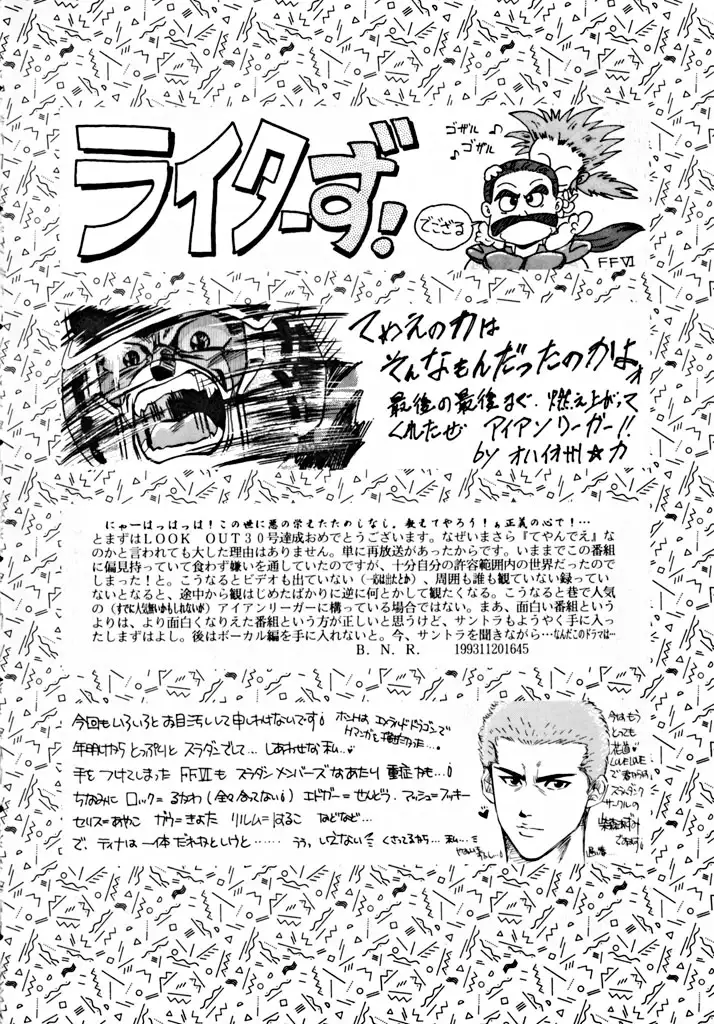 ライターず!
ゴザル♪
♪ゴザル
でござる
FFVI
てめえの力は
そんなもんだったのかよォ
最後の最後まで、燃え上がって
くれたぜ アイアンリーガー!!
by オハイオ州☆力
にゃーはっはっは!この世に悪の栄えたためしなし。教えてやろう!ぁ正義の心で!…
とまずはLOOK OUT30号達成おめでとうございます。なぜいまさら『てやんでえ』な
のかと言われても大した理由はありません。単に再放送があったからです。いままでこの番組
に偏見持っていて食わず嫌いを通していたのですが、十分自分の許容範囲内の世界だったので
しまった!と。こうなるとビデオも出ていない(一説には出たとか)、周囲も誰も観ていない録ってい
ないとなると、途中から観はじめたばかりに逆に何とかして観たくなる。こうなると巷で人気
の(すでに人気無いかもしれないが)アイアンリーガーに構っている場合ではない。まあ、面白い番組という
よりは、より面白くなりえた番組という方が正しいと思うけど、サントラもようやく手に入っ
たしまずはよし。後はボーカル編を手に入れないと。今、サントラを聞きながら…なんだこのドラマは…
B．N．R．　199311201645
今回もいろいろとお目汚しで申しわけないです!
年明けから とっぷりと スラダンでして… しあわせな私…
手をつけてしまった FFVIも スラダンメンバーズなあたり 重症かも…!
ちなみに ロック=るかわ(全々合ってない!) エドガー=せんどう. マッシュ=フッキー
セリス=あやこ ガウ=きよた リルム=はるこ などなど…
で、ティナは一体だれなというと…… うぅっ、いえない くさってるわ… 私…
今はもう
とっても
花道♥
LOVELOVE